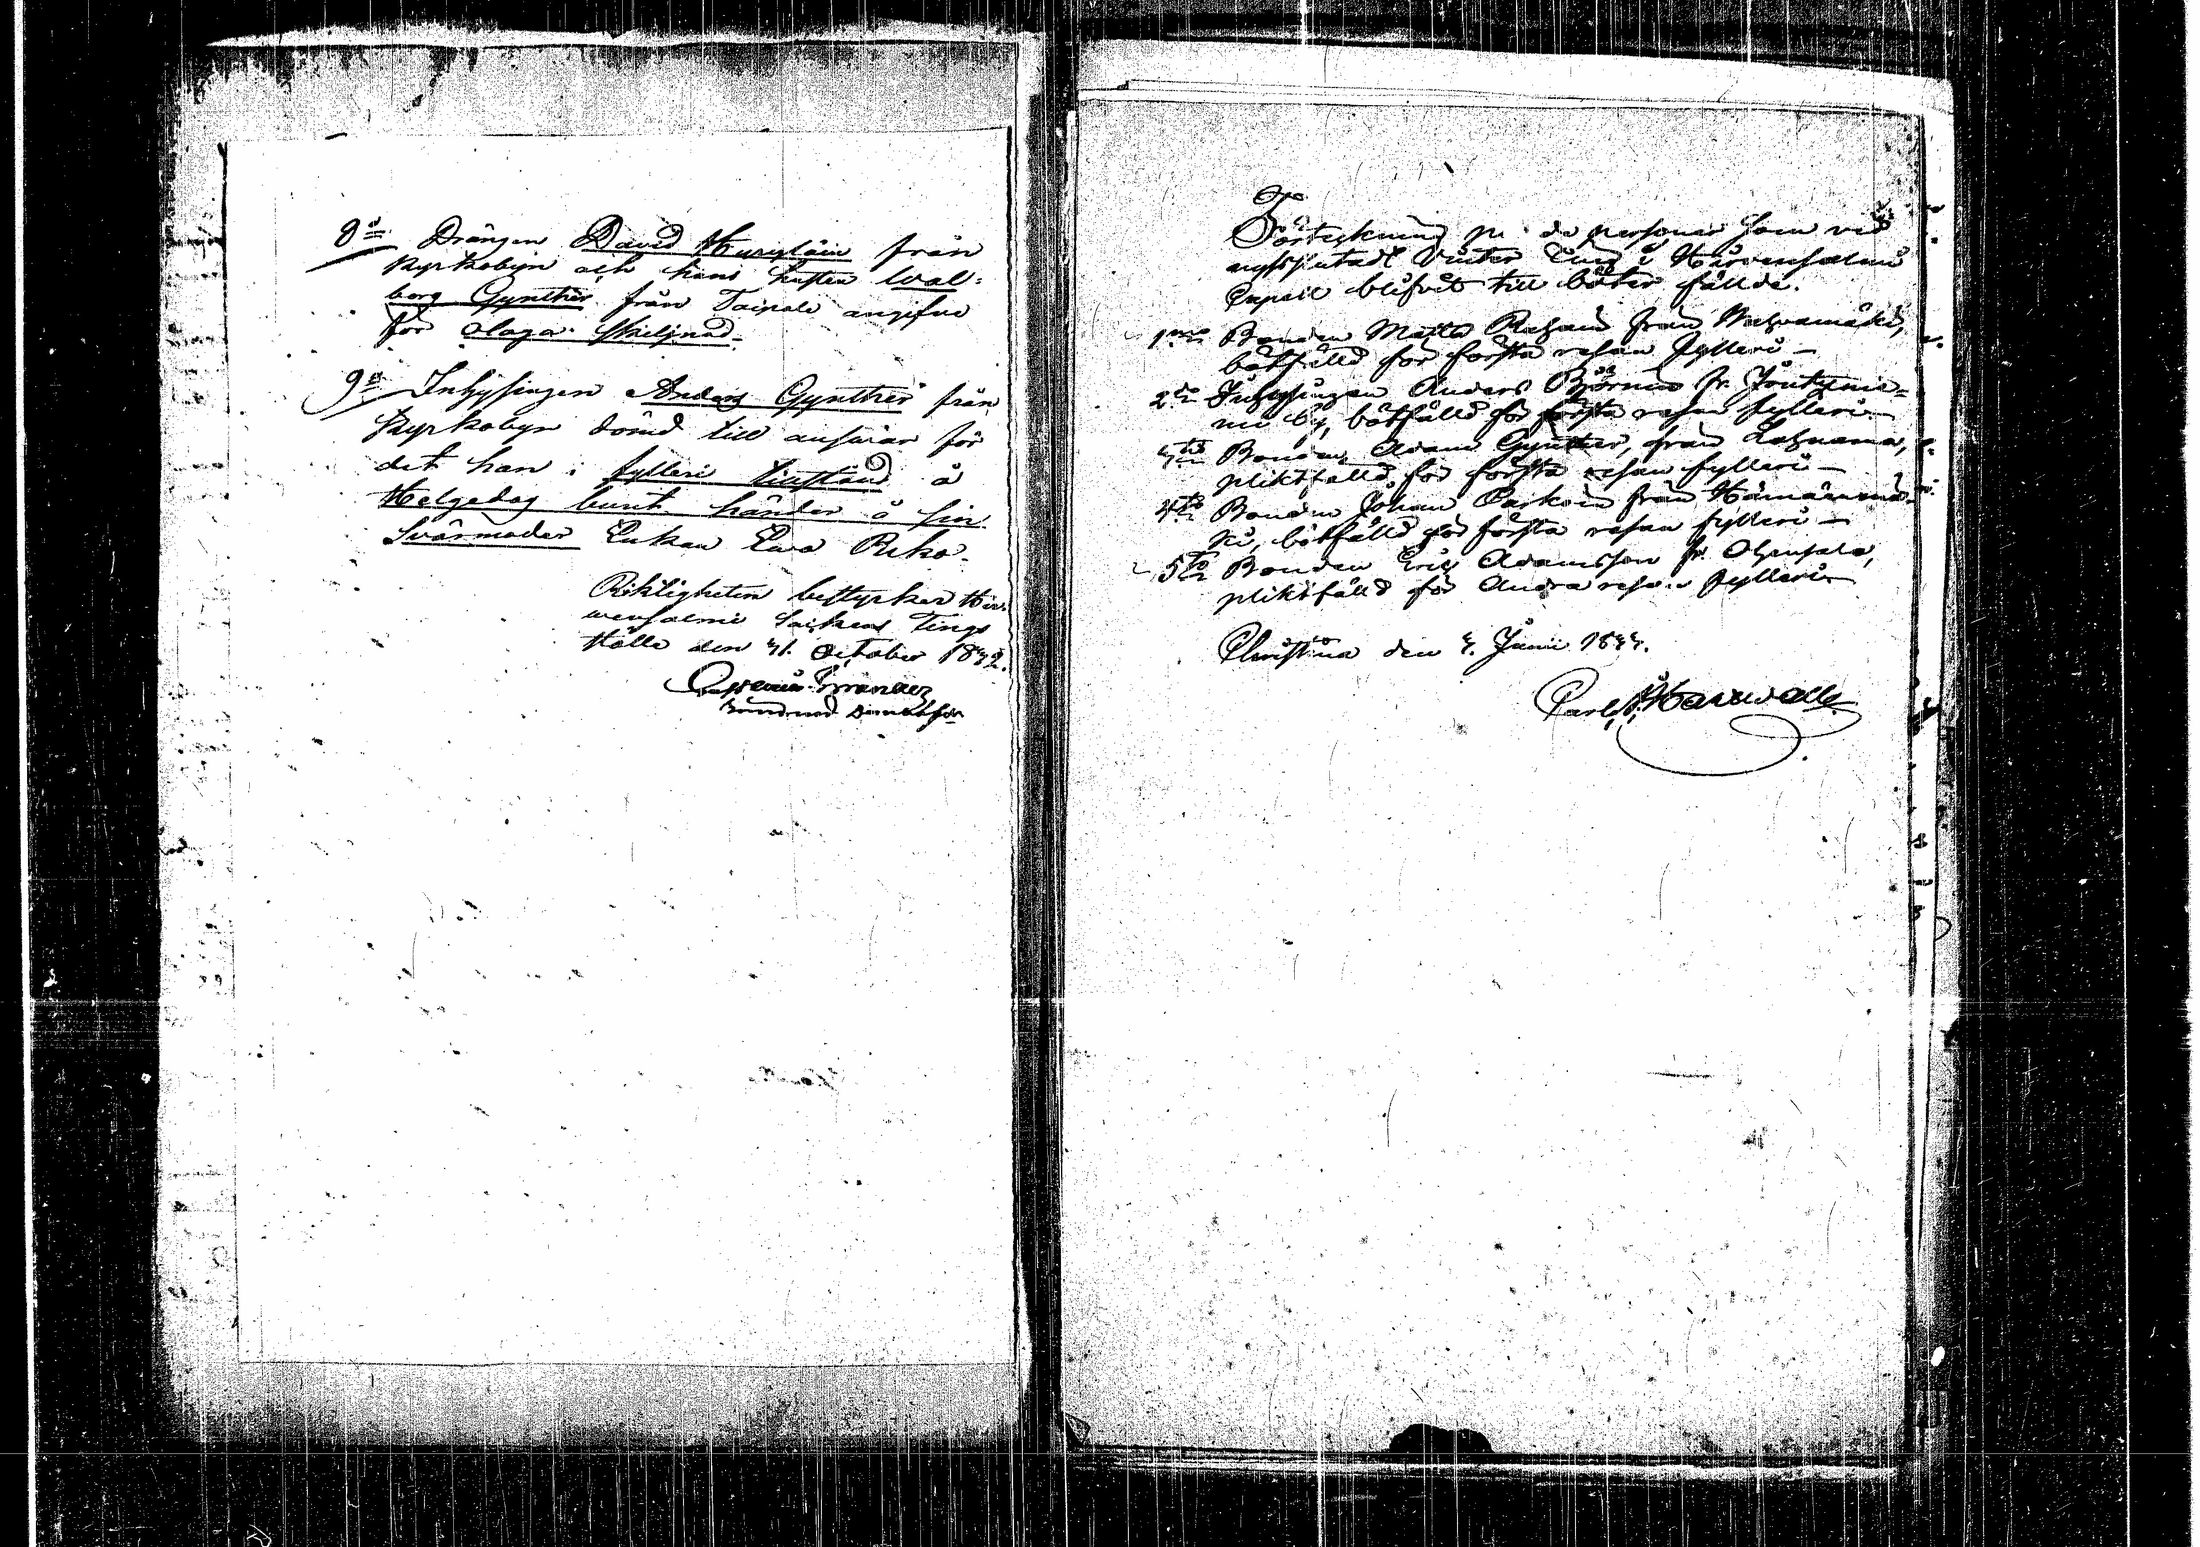 8:d Drängen David Hyrylain från
Kyrkobyn och hans hustru Wal-
borg Gynther från Taipale angifne
för olaga Skiljnad.
9:d Inhysingen Anders Gynther från
Kyrkobyn dömd till ansvar för
det han i fylleri tillstånd å
Helgedag burit händer å sin
Svärmoder Enkan Ewa Puko.
Riktigheten bestyrker Hir-
wensalmi Sockens Tings
Ställe den 31. October 1832.
Förtekning på de personer som vid
nyssslutadt Vinter Ting i Hirvensalmi
Capell blifvit till böter fällde.
1:mo Bonden Matts Pahain från Wahvamäki,
bötfälld för första resan fylleri —
2:do Inhysingen Anders Björn fr. Jöutznie-
mi by, bötfälld för första resan fylleri —
3:tio Bonden Adam Gynther, från Lahnama,
pliktfälld för första resan fylleri —
4:to Bonden Johan Parkoin från Hämä
ki, bötfälld för första resan fylleri —
5:to Bonden Eric Adamsson fr. Ohensala,
pliktfälld för Andra resan fylleri —
Christina den 3. Junii 1833.
Carl